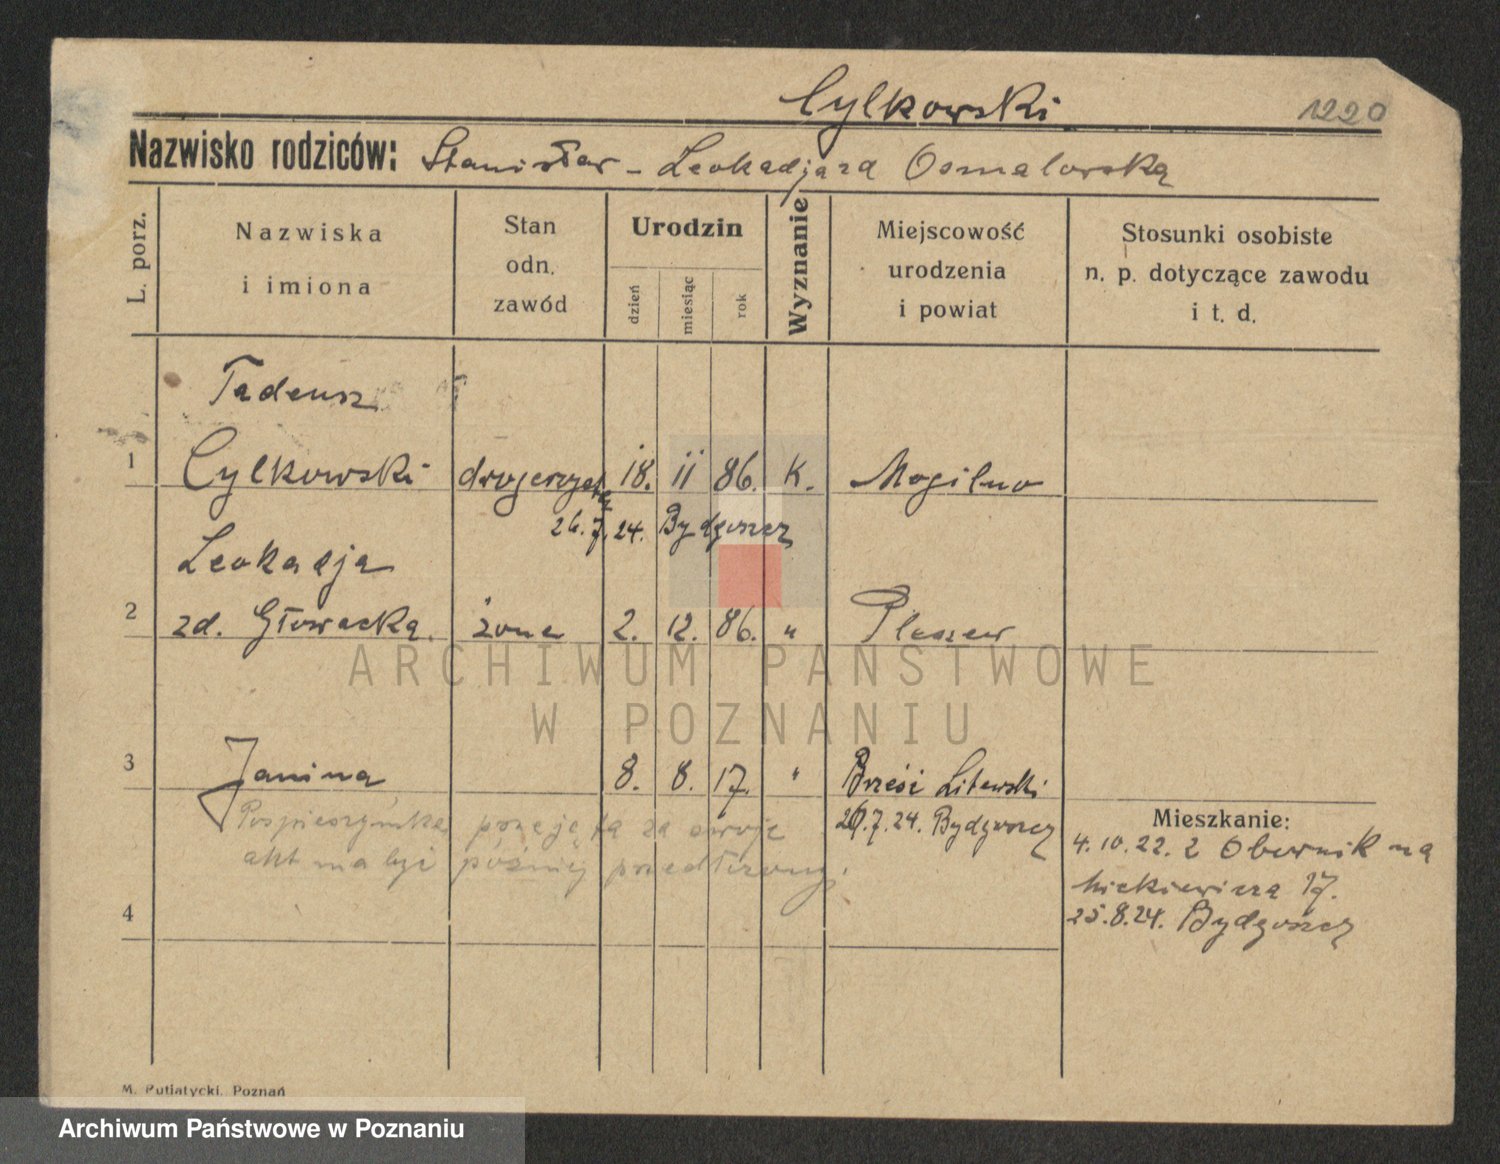 Cylkowski
1220
Nazwisko rodziców: Stanisław - Leokadja zd Osmalowska
L. porz.
Nazwiska i imiona
Stan odn. zawód
Urodzin
dzień
miesiąc
rok
Wyznanie
Miejscowość urodzenia i powiat
Stosunki osobiste n. p. dotyczące zawodu i t. d.
Tadeusz
1 Cylkowski drogerzysta 18. 11 86. K. Mogilno
26.7.24. Bydgoszcz
Leokadja
2 zd. Głowacka. żona 2. 12. 86. " Pleszew
3 Janina 8. 8. 17. " Brześć Litewski
Pospieszyńska przyjęta za swoje
26.7.24. Bydgoszcz
akt ma być później przedłożony.
4
Mieszkanie:
4.10.22. z Obornik na
Mickiewicza 17.
25.8.24. Bydgoszcz
M. Putiatycki, Poznań
ARCHIWUM PAŃSTWOWE
W POZNANIU
Archiwum Państwowe w Poznaniu